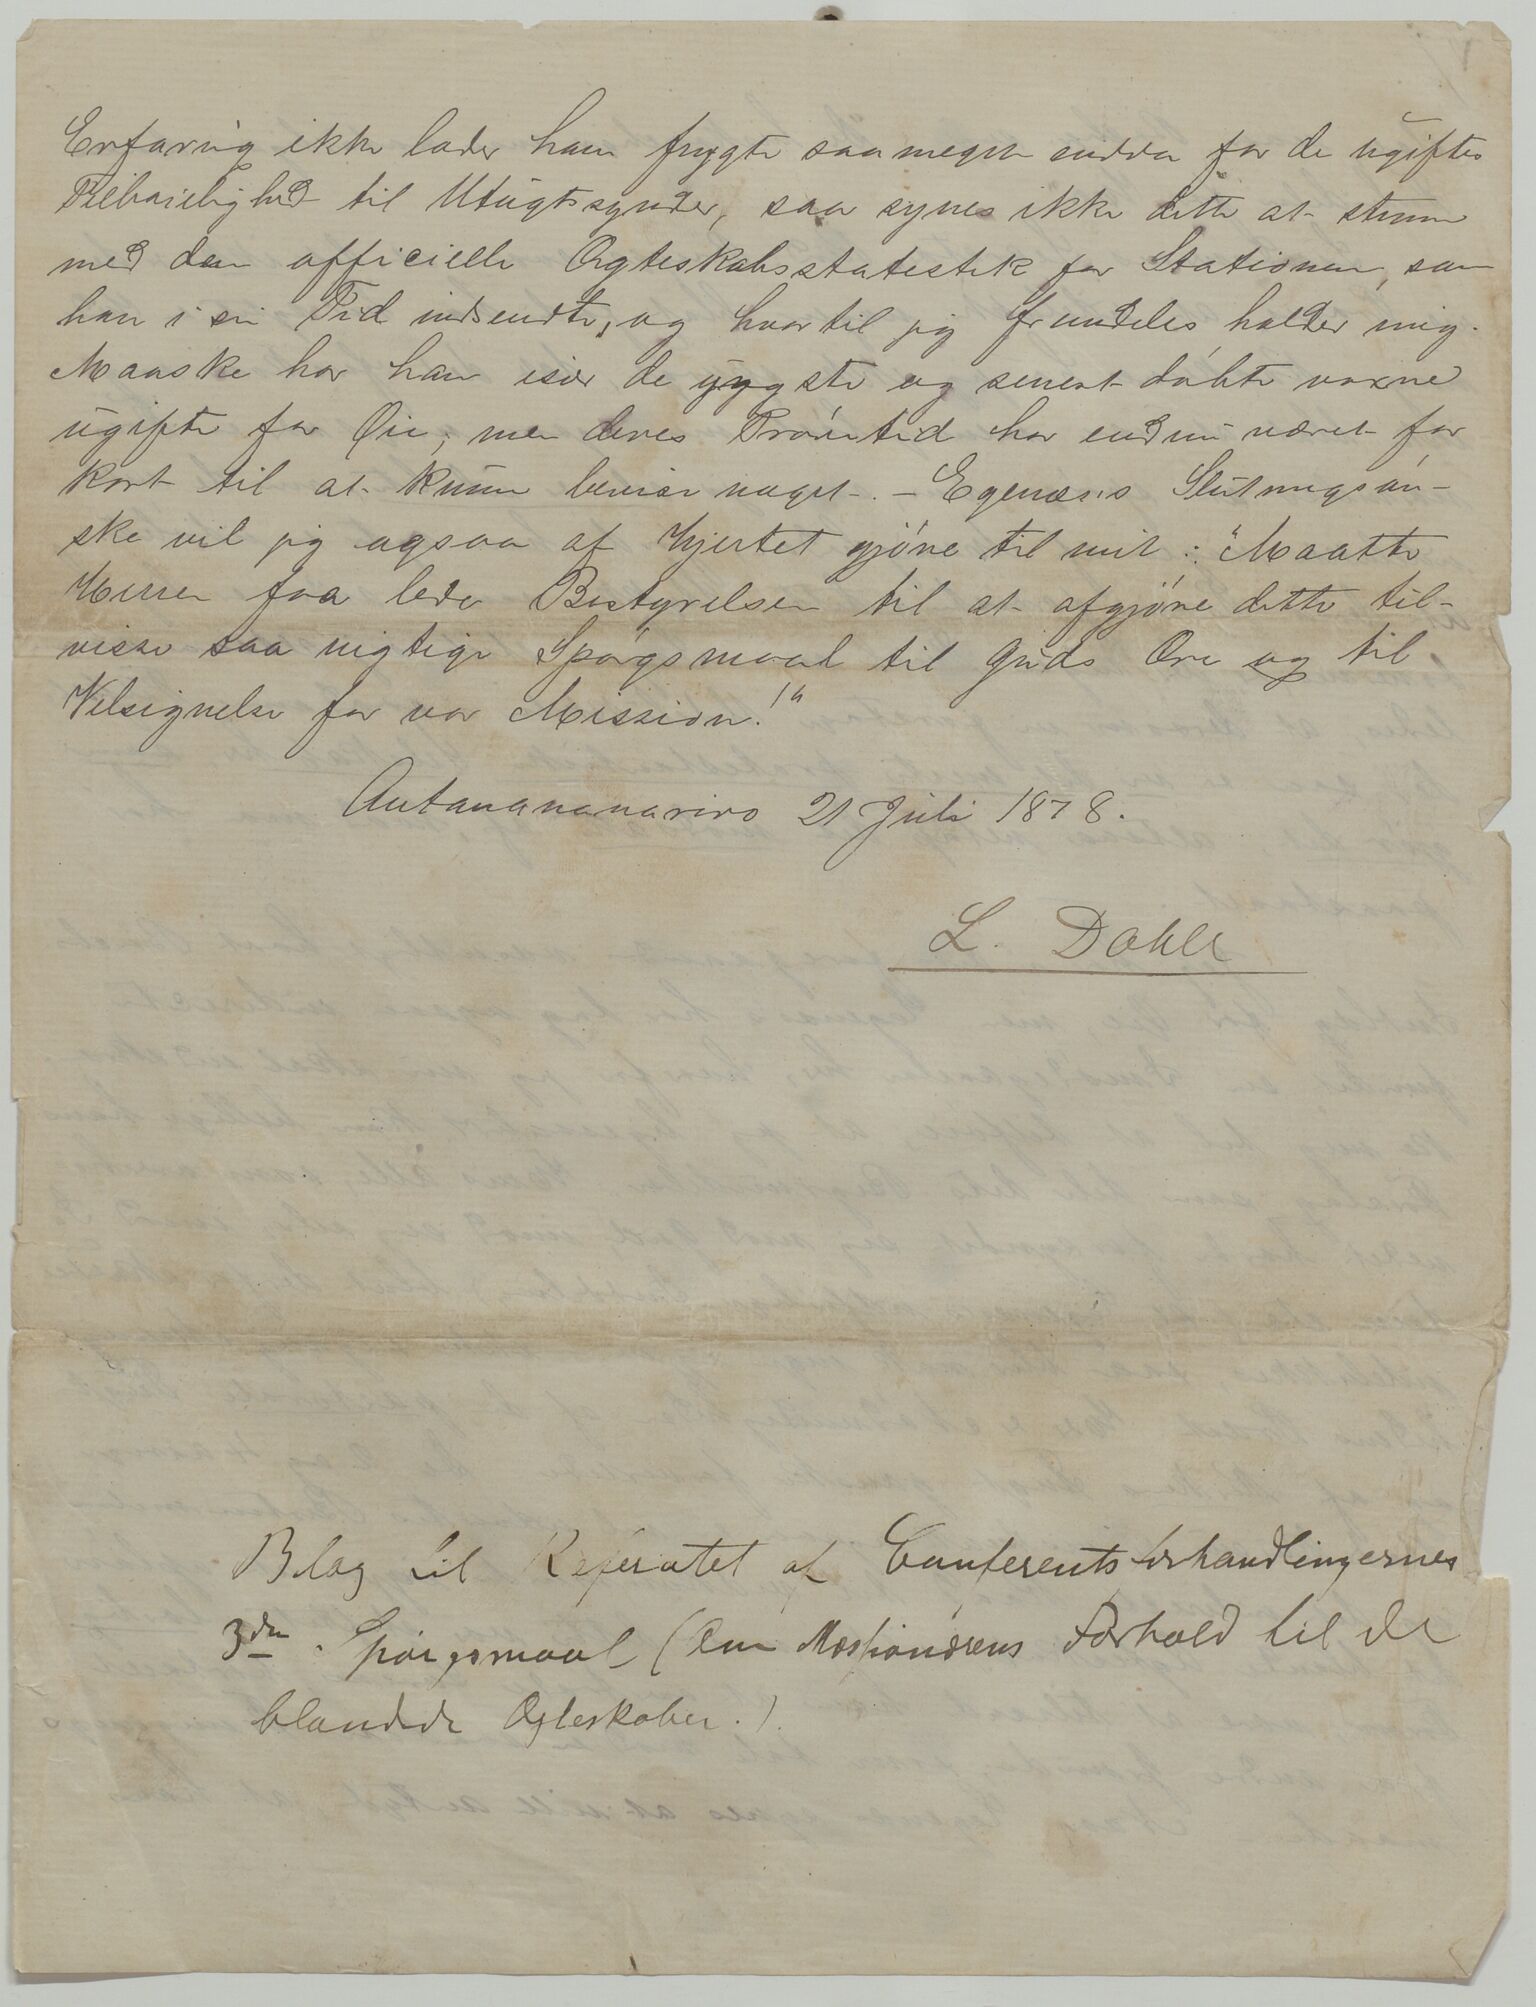 Erfaring ikke lader ham frygte saameget endda for de ugiftes
Tilbøielighed til Utugtssynder, saa synes ikke dette at stemme
med den officielle Ægteskabsstatestik for Stationen, som
han i sin Tid indsendte, og hvortil jeg fremdeles holder mig.
Maaske har han især de yngste og senest døbte voxne
ugifte for Øie; men deres Prøvetid har endnu været for
kort til at kunne bevise noget. – Egenæs's Slutningsøn-
ske vil jeg ogsaa af Hjertet gjøre til mit: "Maatte
Herren faa lede Bestyrelsen til at afgjøre dette til-
visse saa vigtige Spørgsmaal til Guds Ære og til
Velsignelse for vor Mission!"
Antananarivo 21 Juli 1878.
L. Dahle
Bilag til Referatet af Conferentsforhandlingernes
3die Spørgsmaal (Om Missionærens Forhold til de
blandede Ægteskaber.).